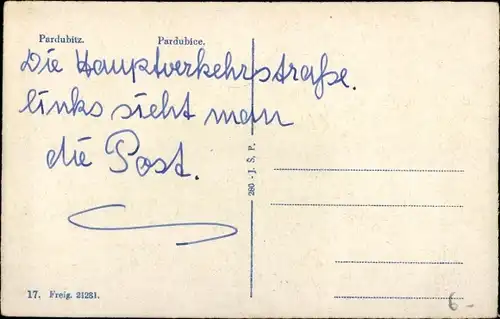 Pardubitz. Pardubice.
Die Hauptverkehrsstraße.
links sieht man
die Post.
280 - J. S. P.
17. Freig. 21281.
6-